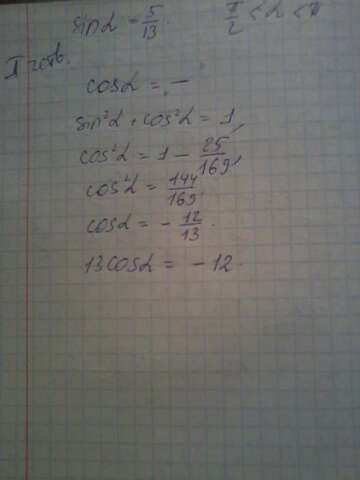 sin α = 5/13. π/2 < α < π
II четв.
cos α = -
sin²α + cos²α = 1
cos²α = 1 - 25/169
cos²α = 144/169
cos α = - 12/13.
13 cos α = - 12.